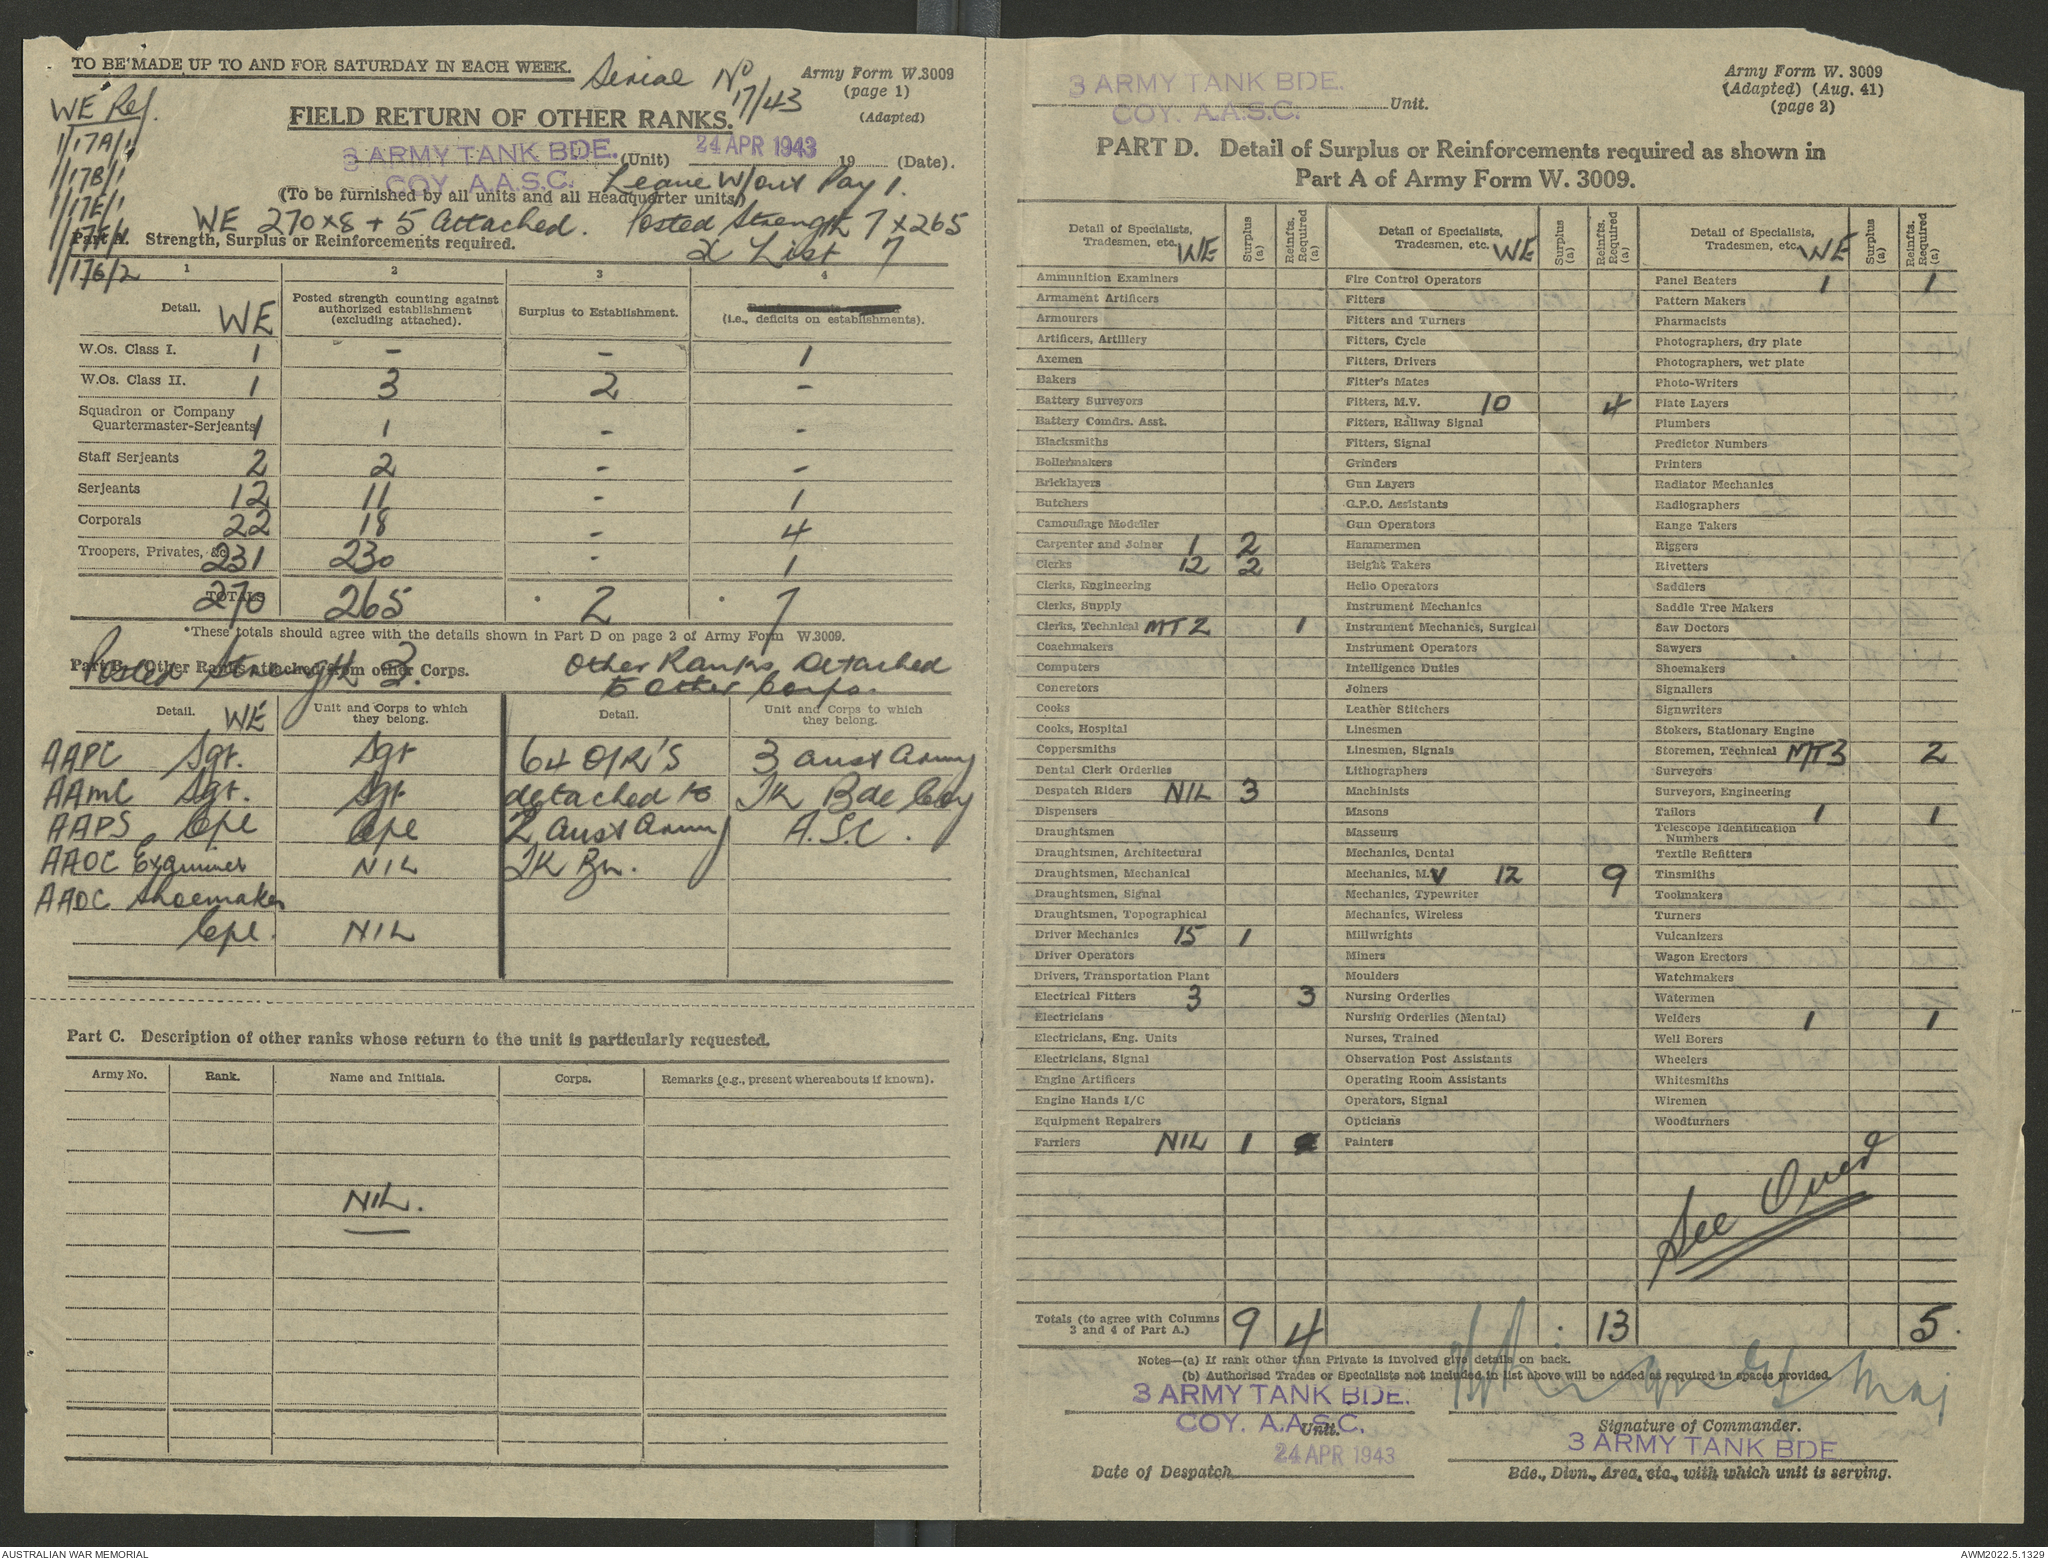 TO BE MADE UP TO AND FOR SATURDAY IN EACH WEEK.
Serial No 17/43
Army Form W.3009
(page 1)
(Adapted)
WE Ref.
1/17A/1
1/17B/1
1/17E/1
1/17F/1
1/17G/2
FIELD RETURN OF OTHER RANKS.
3 ARMY TANK BDE. (Unit) 24 APR 1943 19 (Date).
COY. A.A.S.C. Leave W/out Pay 1.
(To be furnished by all units and all Headquarter units)
WE 270 x 8 + 5 Attached. Posted Strength 7 x 265
X List 7
Part A. Strength, Surplus or Reinforcements required.
1 2 3 4
Detail. WE
Posted strength counting against authorized establishment (excluding attached).
Surplus to Establishment.
(i.e., deficits on establishments).
W.Os. Class I. 1 - - 1
W.Os. Class II. 1 3 2 -
Squadron or Company
Quartermaster-Serjeants 1 1 - -
Staff Serjeants 2 2 - -
Serjeants 12 11 - 1
Corporals 22 18 - 4
Troopers, Privates, &c. 231 230 - 1
TOTALS 270 265 * 2 * 7
*These totals should agree with the details shown in Part D on page 2 of Army Form W.3009.
Part B. Other Ranks attached from other Corps.
Posted Strength 3.
Other Ranks Detached
to other Corps.
Detail. WE
Unit and Corps to which they belong.
Detail.
Unit and Corps to which they belong.
AAPC Sgt. Sgt 64 O/R'S 3 Aust Army
AAMC Sgt. Sgt detached to TK Bde Coy
AAPS Cpl Cpl 2 Aust Army A.S.C.
AAOC Examiner NIL TK Bn.
AAOC Shoemaker
Cpl. NIL
Part C. Description of other ranks whose return to the unit is particularly requested.
Army No. Rank. Name and Initials. Corps. Remarks (e.g., present whereabouts if known).
NIL.
3 ARMY TANK BDE.
COY. A.A.S.C. Unit.
Army Form W. 3009
(Adapted) (Aug. 41)
(page 2)
PART D. Detail of Surplus or Reinforcements required as shown in
Part A of Army Form W. 3009.
Detail of Specialists, Tradesmen, etc. WE Surplus (a) Reinfts. Required (a)
Ammunition Examiners
Armament Artificers
Armourers
Artificers, Artillery
Axemen
Bakers
Battery Surveyors
Battery Comdrs. Asst.
Blacksmiths
Boilermakers
Bricklayers
Butchers
Camouflage Modeller
Carpenter and Joiner 1 2
Clerks 12 2
Clerks, Engineering
Clerks, Supply
Clerks, Technical MT 2 1
Coachmakers
Computers
Concretors
Cooks
Cooks, Hospital
Coppersmiths
Dental Clerk Orderlies
Despatch Riders NIL 3
Dispensers
Draughtsmen
Draughtsmen, Architectural
Draughtsmen, Mechanical
Draughtsmen, Signal
Draughtsmen, Topographical
Driver Mechanics 15 1
Driver Operators
Drivers, Transportation Plant
Electrical Fitters 3 3
Electricians
Electricians, Eng. Units
Electricians, Signal
Engine Artificers
Engine Hands I/C
Equipment Repairers
Farriers NIL 1
Detail of Specialists, Tradesmen, etc. WE Surplus (a) Reinfts. Required (a)
Fire Control Operators
Fitters
Fitters and Turners
Fitters, Cycle
Fitters, Drivers
Fitter's Mates
Fitters, M.V. 10 4
Fitters, Railway Signal
Fitters, Signal
Grinders
Gun Layers
G.P.O. Assistants
Gun Operators
Hammermen
Height Takers
Helio Operators
Instrument Mechanics
Instrument Mechanics, Surgical
Instrument Operators
Intelligence Duties
Joiners
Leather Stitchers
Linesmen
Linesmen, Signals
Lithographers
Machinists
Masons
Masseurs
Mechanics, Dental
Mechanics, M.V 12 9
Mechanics, Typewriter
Mechanics, Wireless
Millwrights
Miners
Moulders
Nursing Orderlies
Nursing Orderlies (Mental)
Nurses, Trained
Observation Post Assistants
Operating Room Assistants
Operators, Signal
Opticians
Painters
Detail of Specialists, Tradesmen, etc. WE Surplus (a) Reinfts. Required (a)
Panel Beaters 1 1
Pattern Makers
Pharmacists
Photographers, dry plate
Photographers, wet plate
Photo-Writers
Plate Layers
Plumbers
Predictor Numbers
Printers
Radiator Mechanics
Radiographers
Range Takers
Riggers
Rivetters
Saddlers
Saddle Tree Makers
Saw Doctors
Sawyers
Shoemakers
Signallers
Signwriters
Stokers, Stationary Engine
Storemen, Technical MT 3 2
Surveyors
Surveyors, Engineering
Tailors 1 1
Telescope Identification Numbers
Textile Refitters
Tinsmiths
Toolmakers
Turners
Vulcanizers
Wagon Erectors
Watchmakers
Watermen
Welders 1 1
Well Borers
Wheelers
Whitesmiths
Wiremen
Woodturners
See Over
Totals (to agree with Columns 3 and 4 of Part A.) 9 4 . 13 5.
Notes—(a) If rank other than Private is involved give details on back.
(b) Authorised Trades or Specialists not included in list above will be added as required in spaces provided.
3 ARMY TANK BDE.
COY. A.A.S.C.
Unit.
24 APR 1943
Date of Despatch
Maj
Signature of Commander.
3 ARMY TANK BDE
Bde., Divn., Area, etc., with which unit is serving.
AUSTRALIAN WAR MEMORIAL
AWM2022.5.1329